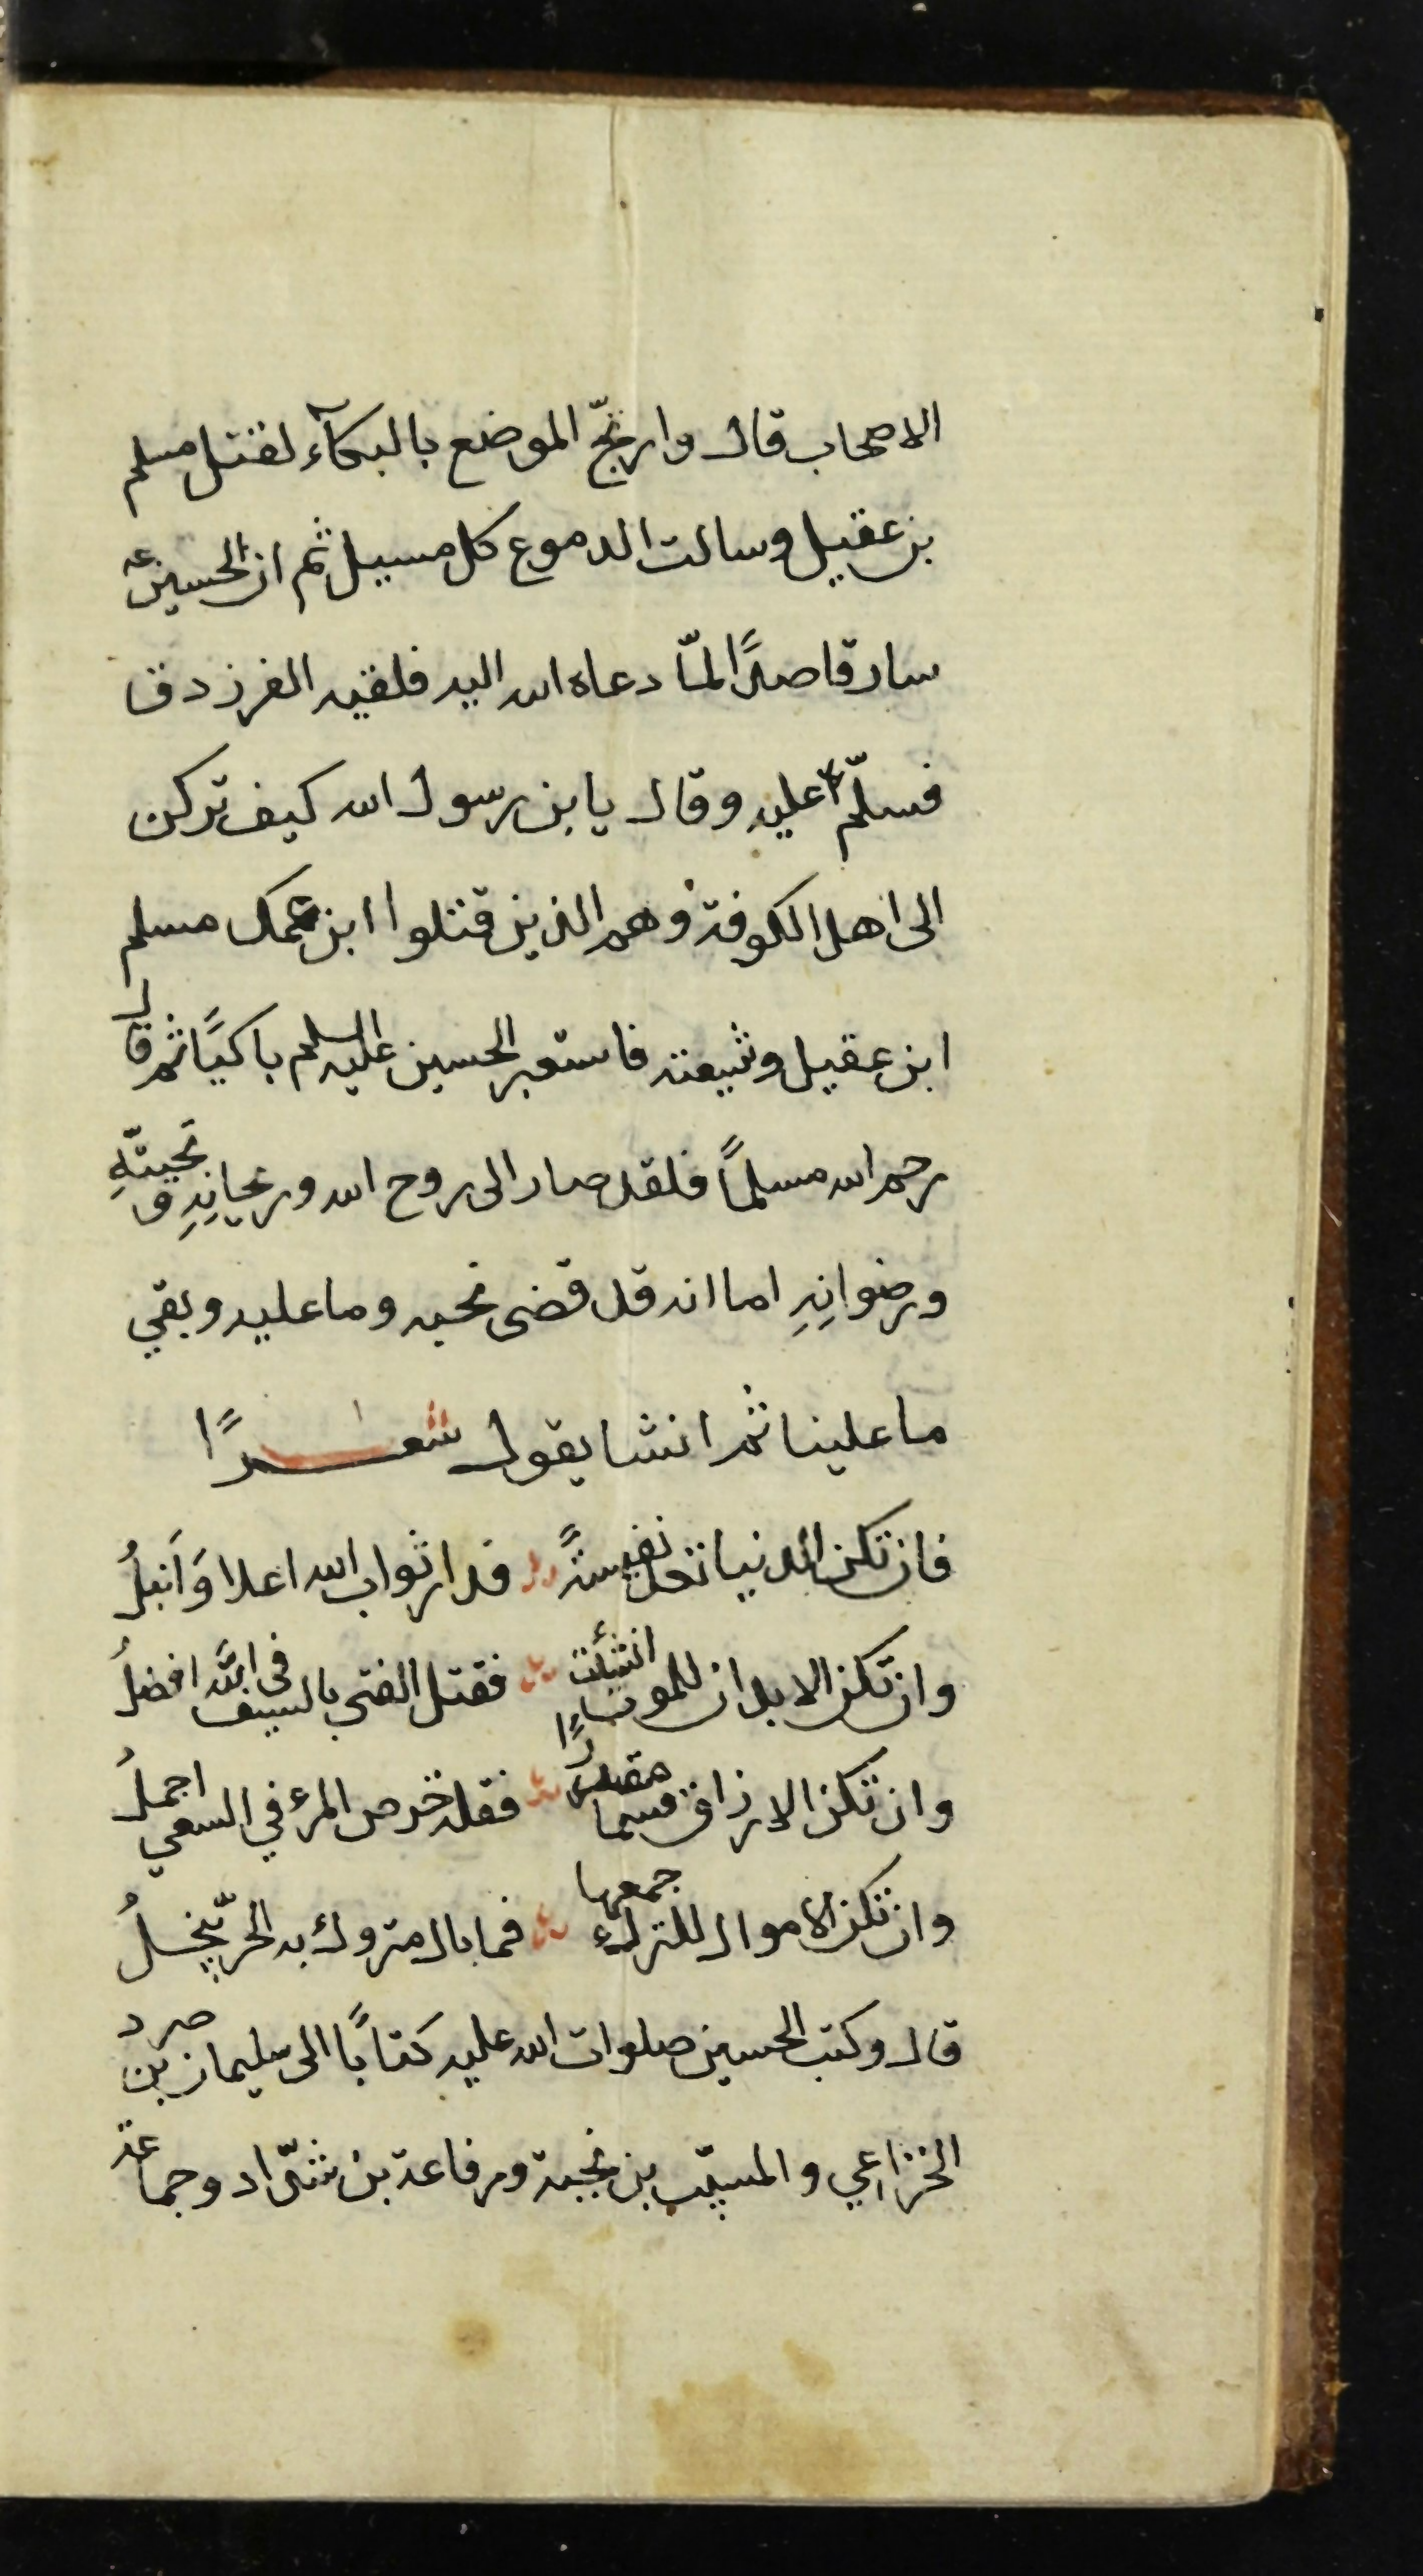 الاصحاب قال وارتجّ الموضع بالبكآء لقتل مسلم
بن عقيل وسالت الدموع كل مسيل ثم ان الحسين عه
سار قاصدًا لمّا دعاه الله اليه فلقيه الفرزدق
فسلّم عليه وقال يابن رسول الله كيف تركن
الى اهل الكوفة وهم الذين قتلوا ابن عمك مسلم
ابن عقيل وشيعته فاستعبر الحسين عليه السلم باكيًا ثم قال
رحم الله مسلمًا فلقد صار الى روح الله وريحانِهِ وتحيتّهِ
ورضوانِهِ اما انه قد قضى نحبه وما عليه وبقي
ما علينا ثم انشا يقول شعرًا
فان تكن الدنيا تعد نفيسةً فدار ثواب الله اعلا وَاَنبلُ
وان تكن الابدان للموت انشئت فقتل الفتى بالسيف في اللَّه افضلُ
وان تكن الارزاق قسما مقدرًا فقلة حرص المرء في السعي اجملُ
وان تكن الاموال للترك جمعها فما بال متروك به الحرّ يبخلُ
قال وكتب الحسين صلوات الله عليه كتابًا الى سليمان بن صرد
الخزاعي والمسيّب بن نجبة ورفاعة بن شدّاد وجماعة